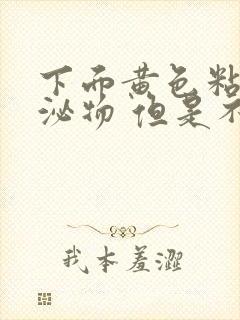 下而黄色粘
泌物 但是不
我本羞澀